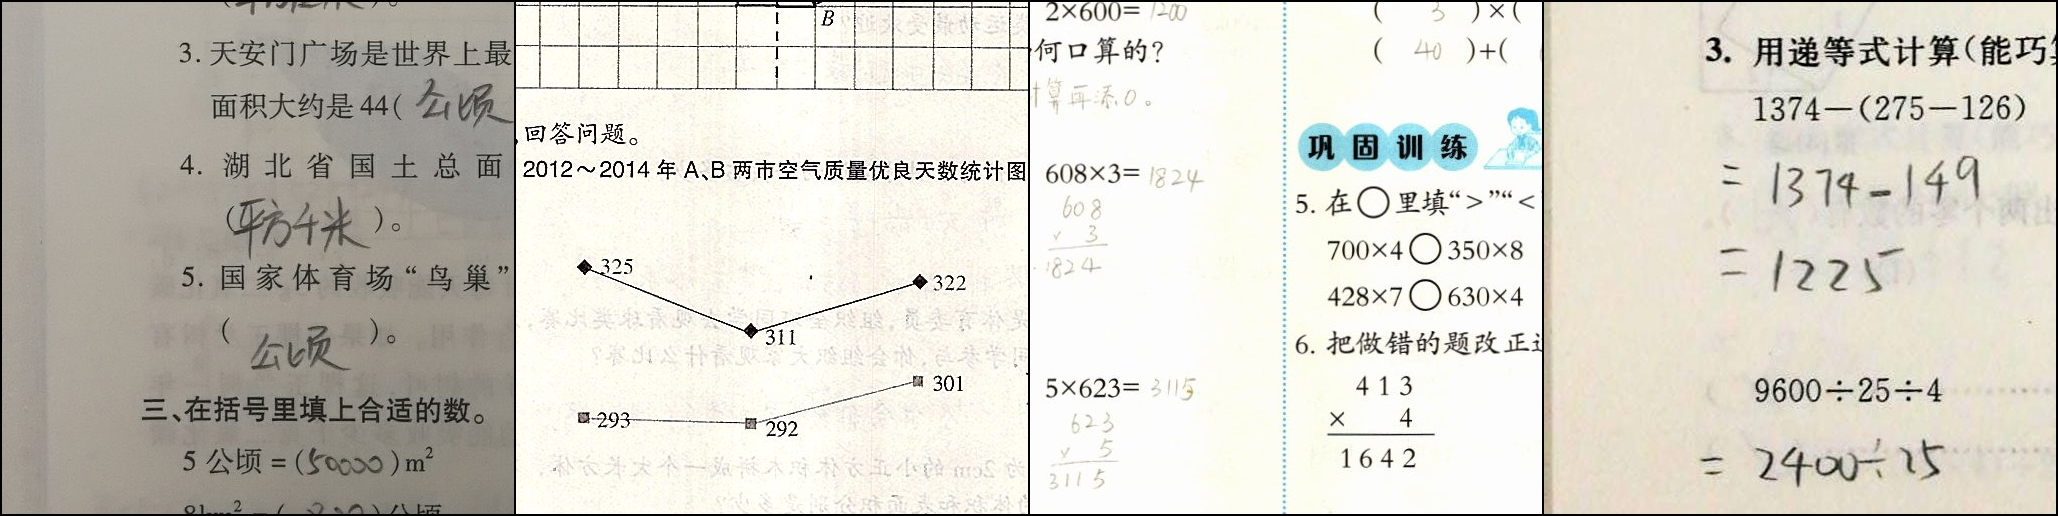 3. 天安门广场是世界上最
面积大约是 44( 公顷
4. 湖北省国土总面
(平方千米)。
5. 国家体育场“鸟巢”
( 公顷 )。
三、在括号里填上合适的数。
5 公顷 = (50000) m²
B
回答问题。
2012～2014 年 A、B 两市空气质量优良天数统计图
325
322
311
301
293
292
2×600= 1200
何口算的?
算再添0。
608×3= 1824
608
× 3
1824
5×623= 3115
623
× 5
3115
( 3 )×(
( 40 )+(
巩固训练
5. 在○里填“>”“<
700×4○350×8
428×7○630×4
6. 把做错的题改正
413
× 4
1642
3. 用递等式计算(能巧
1374－(275－126)
= 1374-149
= 1225
9600÷25÷4
= 2400÷25